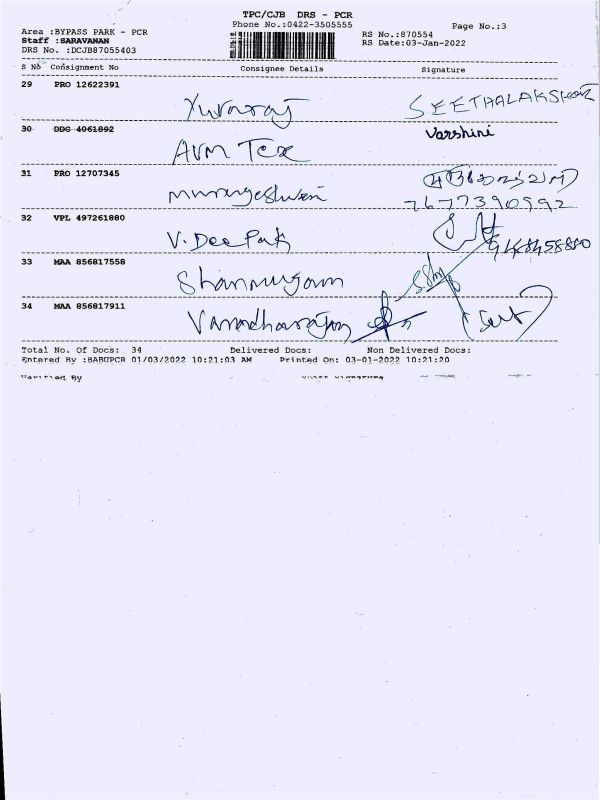 TPC/CJB DRS - PCR
Phone No.:0422-3505555
Page No.:3
Area :BYPASS PARK - PCR
RS No.:870554
Staff :SARAVANAN
RS Date:03-Jan-2022
DRS No. :DCJB87055403
S No Consignment No Consignee Details Signature
29 PRO 12622391
Yuvaraj SEETHALAKSHMI
30 DDG 4061892
AVM Tex Varshini
31 PRO 12707345
Murugeshwari
7677390992
32 VPL 497261880
V. Deepak
33 MAA 856817558
Shanmugam
34 MAA 856817911
Varadharajan
Total No. Of Docs: 34 Delivered Docs: Non Delivered Docs:
Entered By :BABUPCR 01/03/2022 10:21:03 AM Printed On: 03-01-2022 10:21:20
Verified By